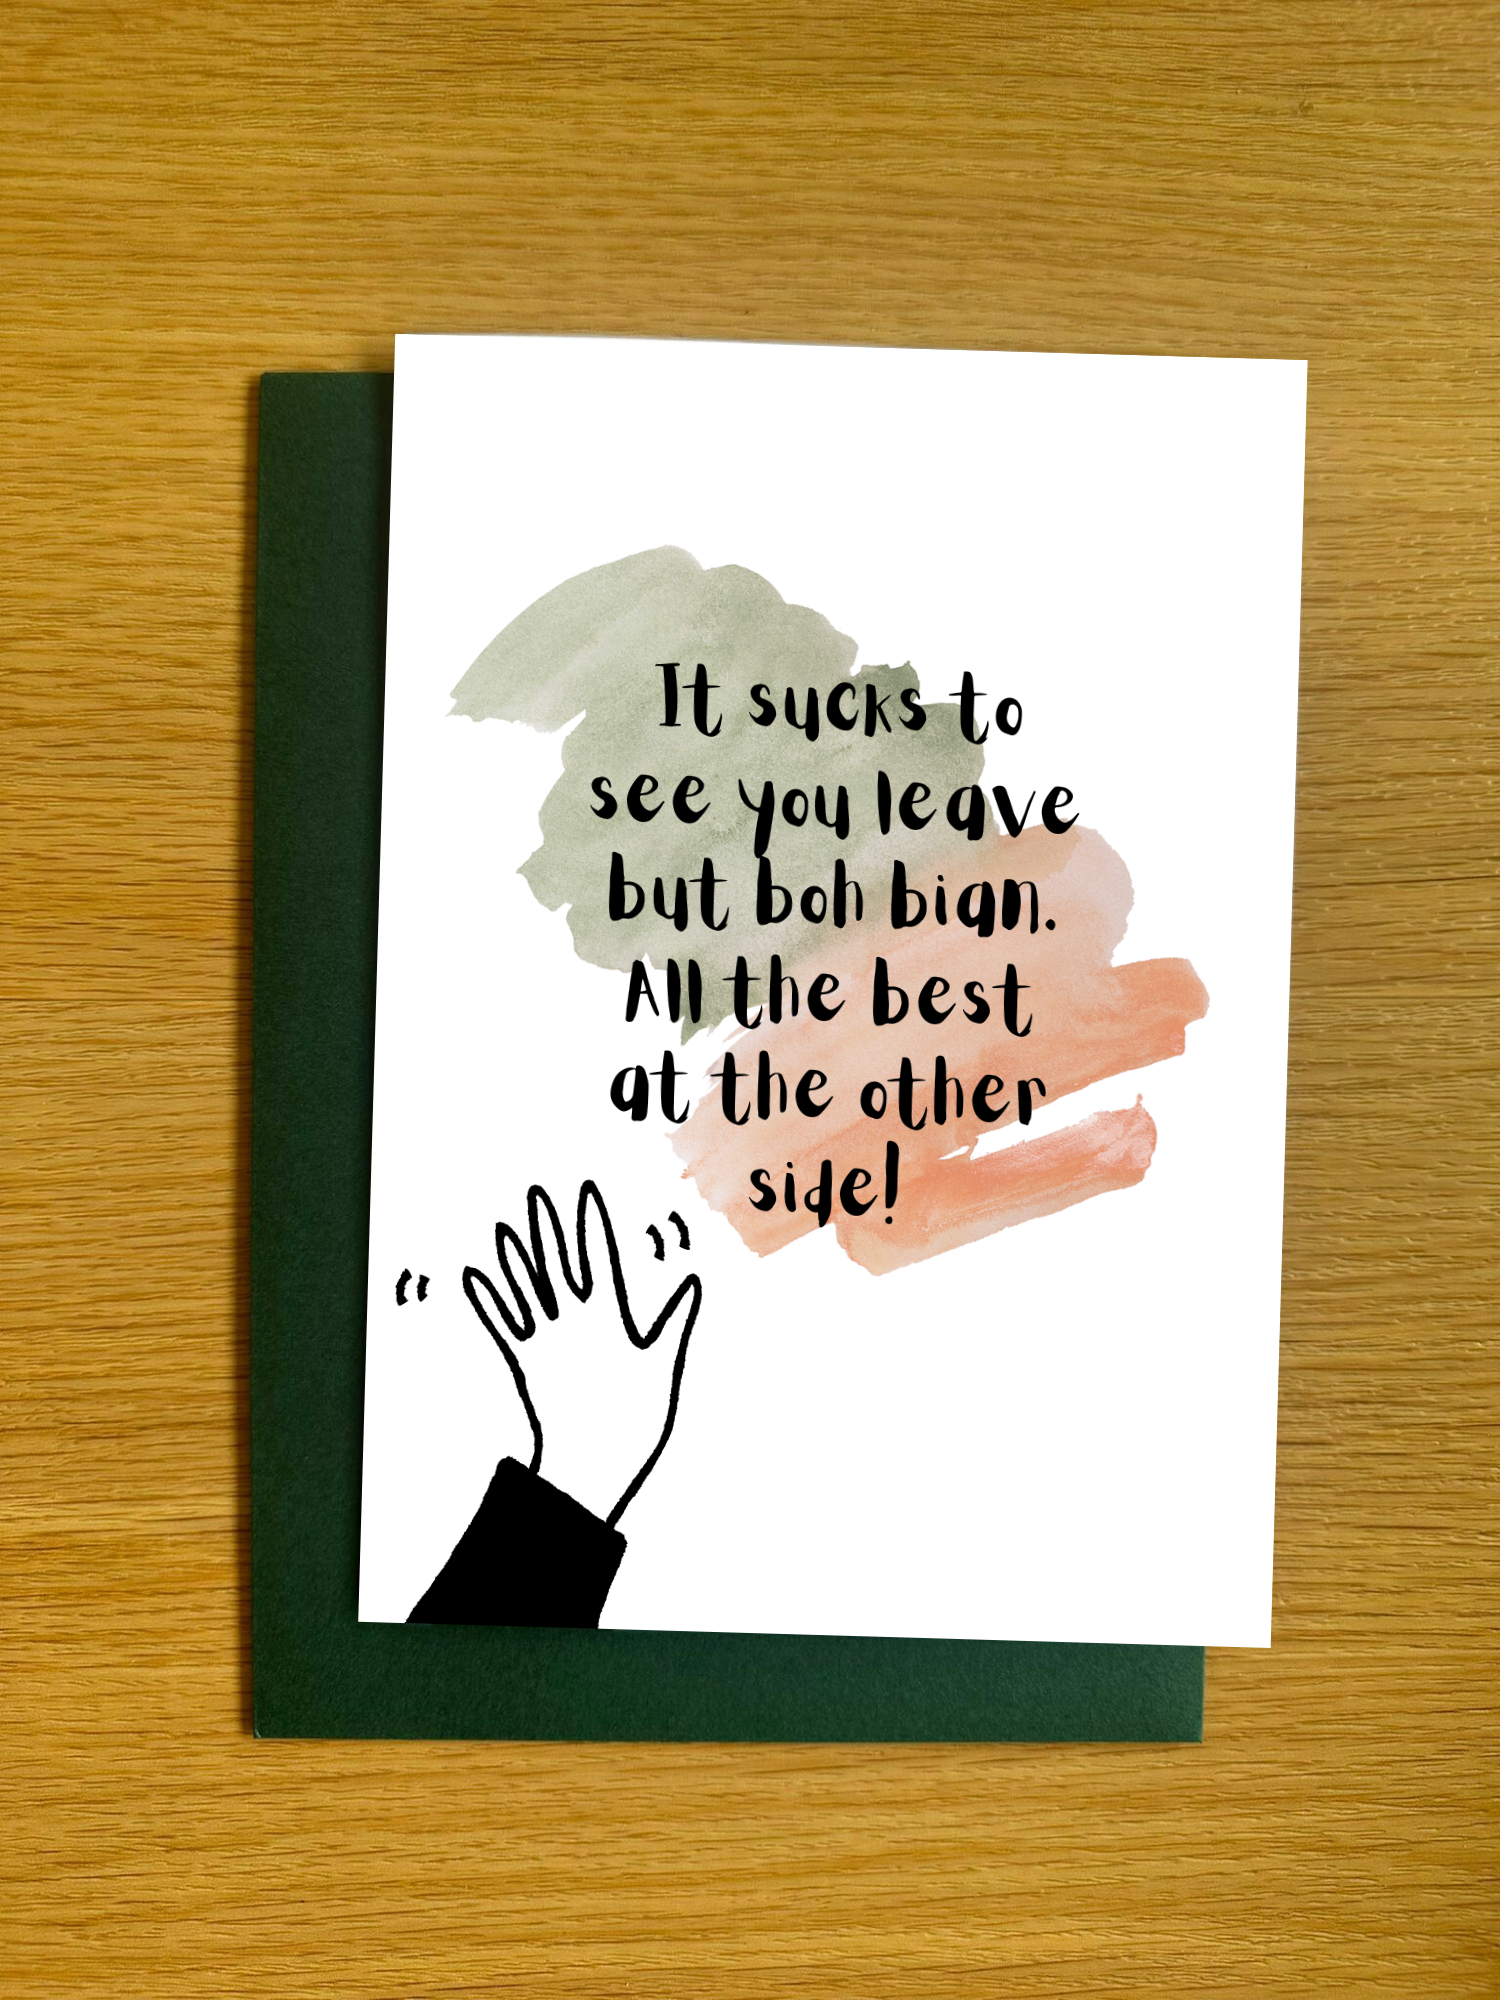 It sucks to
see you leave
but boh bian.
All the best
at the other
side!